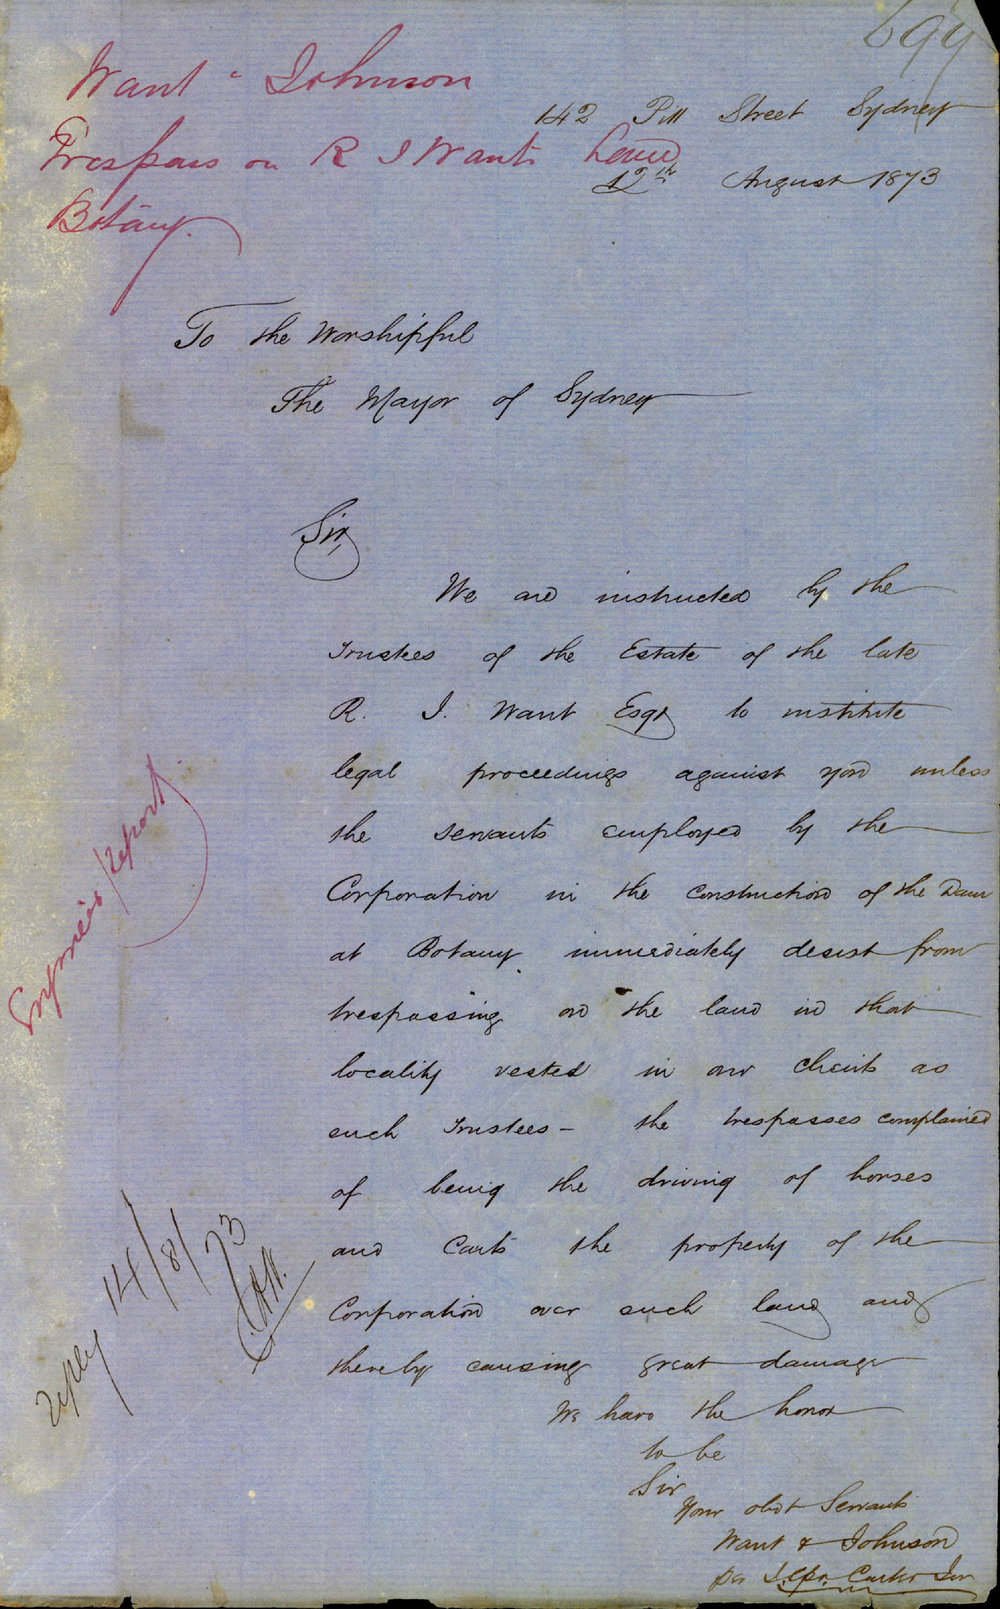 699
Want & Johnson
Trespass on R J Want's Land
Botany.
142 Pitt Street Sydney
12th August 1873
To the Worshipful
The Mayor of Sydney
Sir,
We are instructed by the
Trustees of the Estate of the late
R. J. Want Esqr to institute
legal proceedings against you unless
the servants employed by the
Corporation in the construction of the Dam
at Botany immediately desist from
trespassing on the land in that
locality vested in our clients as
such Trustees — the trespasses complained
of being the driving of horses
and Carts the property of the
Corporation over such land and
thereby causing great damage
We have the honor
to be
Sir
Your obdt Servants
Want & Johnson
per
Engineer's report
reply 14/8/73